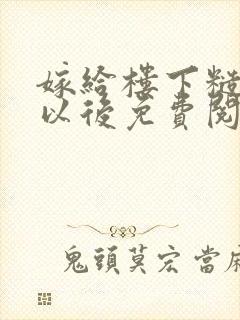 嫁給樓下糙
以後免費閱
鬼頭莫宏當麻